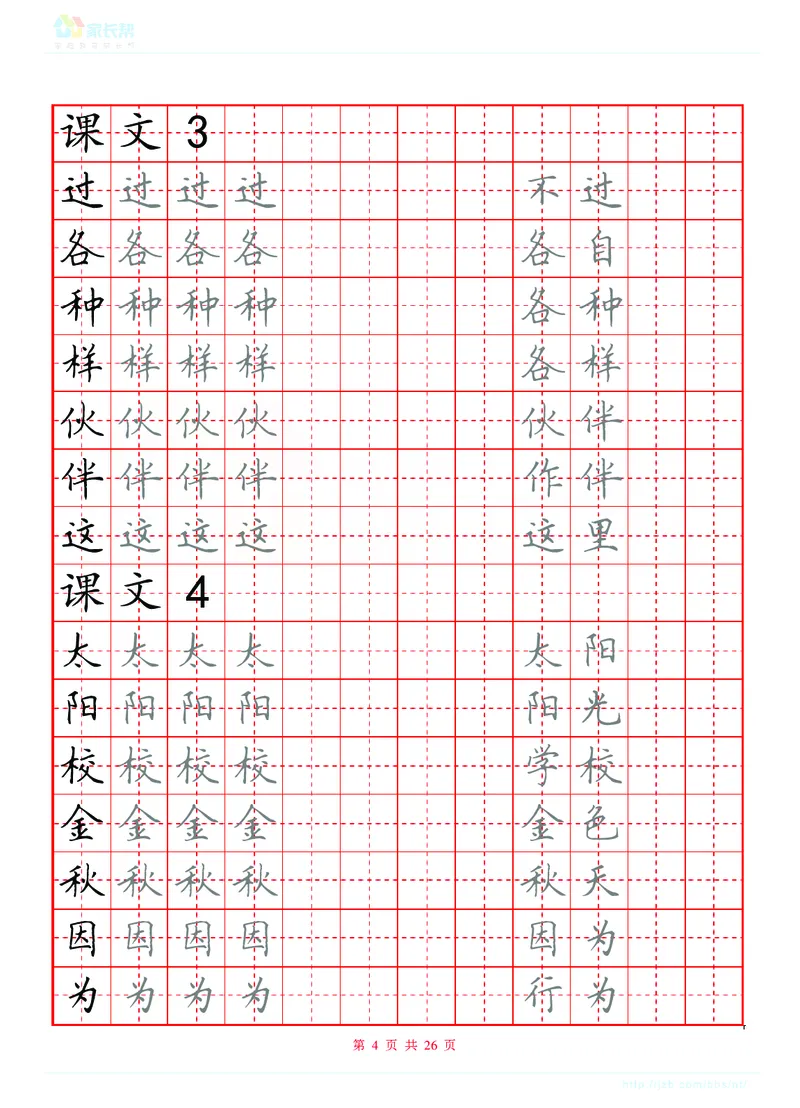 家长帮
课文3
过过过过不过
各各各各各自
种种种种各种
样样样样各样
伙伙伙伙伙伴
伴伴伴伴作伴
这这这这这里
课文4
太太太太太阳
阳阳阳阳阳光
校校校校学校
金金金金金色
秋秋秋秋秋天
因因因因因为
为为为为行为
第 4 页 共 26 页